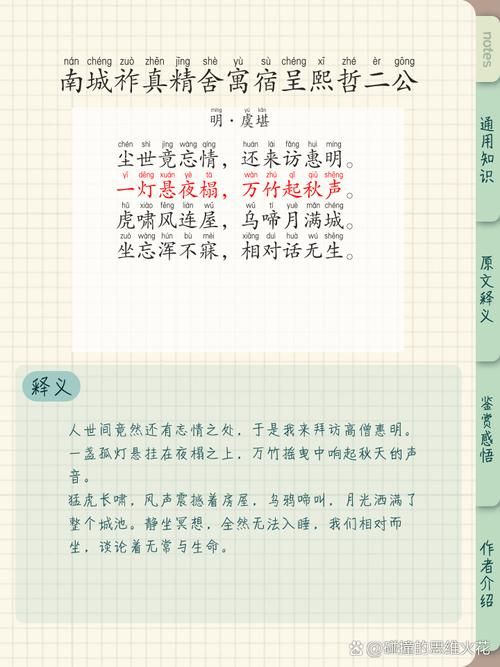 notes
nán chéng zuò zhēn jīng shè yù sù chéng xī zhé èr gōng
南城祚真精舍寓宿呈熙哲二公
míng yú kān
明·虞堪
chén shì jìng wàng qíng huán lái fǎng huì míng
尘世竟忘情，还来访惠明。
yī dēng xuán yè tà wàn zhú qǐ qiū shēng
一灯悬夜榻，万竹起秋声。
hǔ xiào fēng lián wū wū tí yuè mǎn chéng
虎啸风连屋，乌啼月满城。
zuò wàng hún bù mèi xiāng duì huà wú shēng
坐忘浑不寐，相对话无生。
释义
人世间竟然还有忘情之处，于是我来拜访高僧惠明。
一盏孤灯悬挂在夜榻之上，万竹摇曳中响起秋天的声
音。
猛虎长啸，风声震撼着房屋，乌鸦啼叫，月光洒满了
整个城池。静坐冥想，全然无法入睡，我们相对而
坐，谈论着无常与生命。
通用知识
原文释义
鉴赏感悟
作者介绍
@碰撞的思维火花